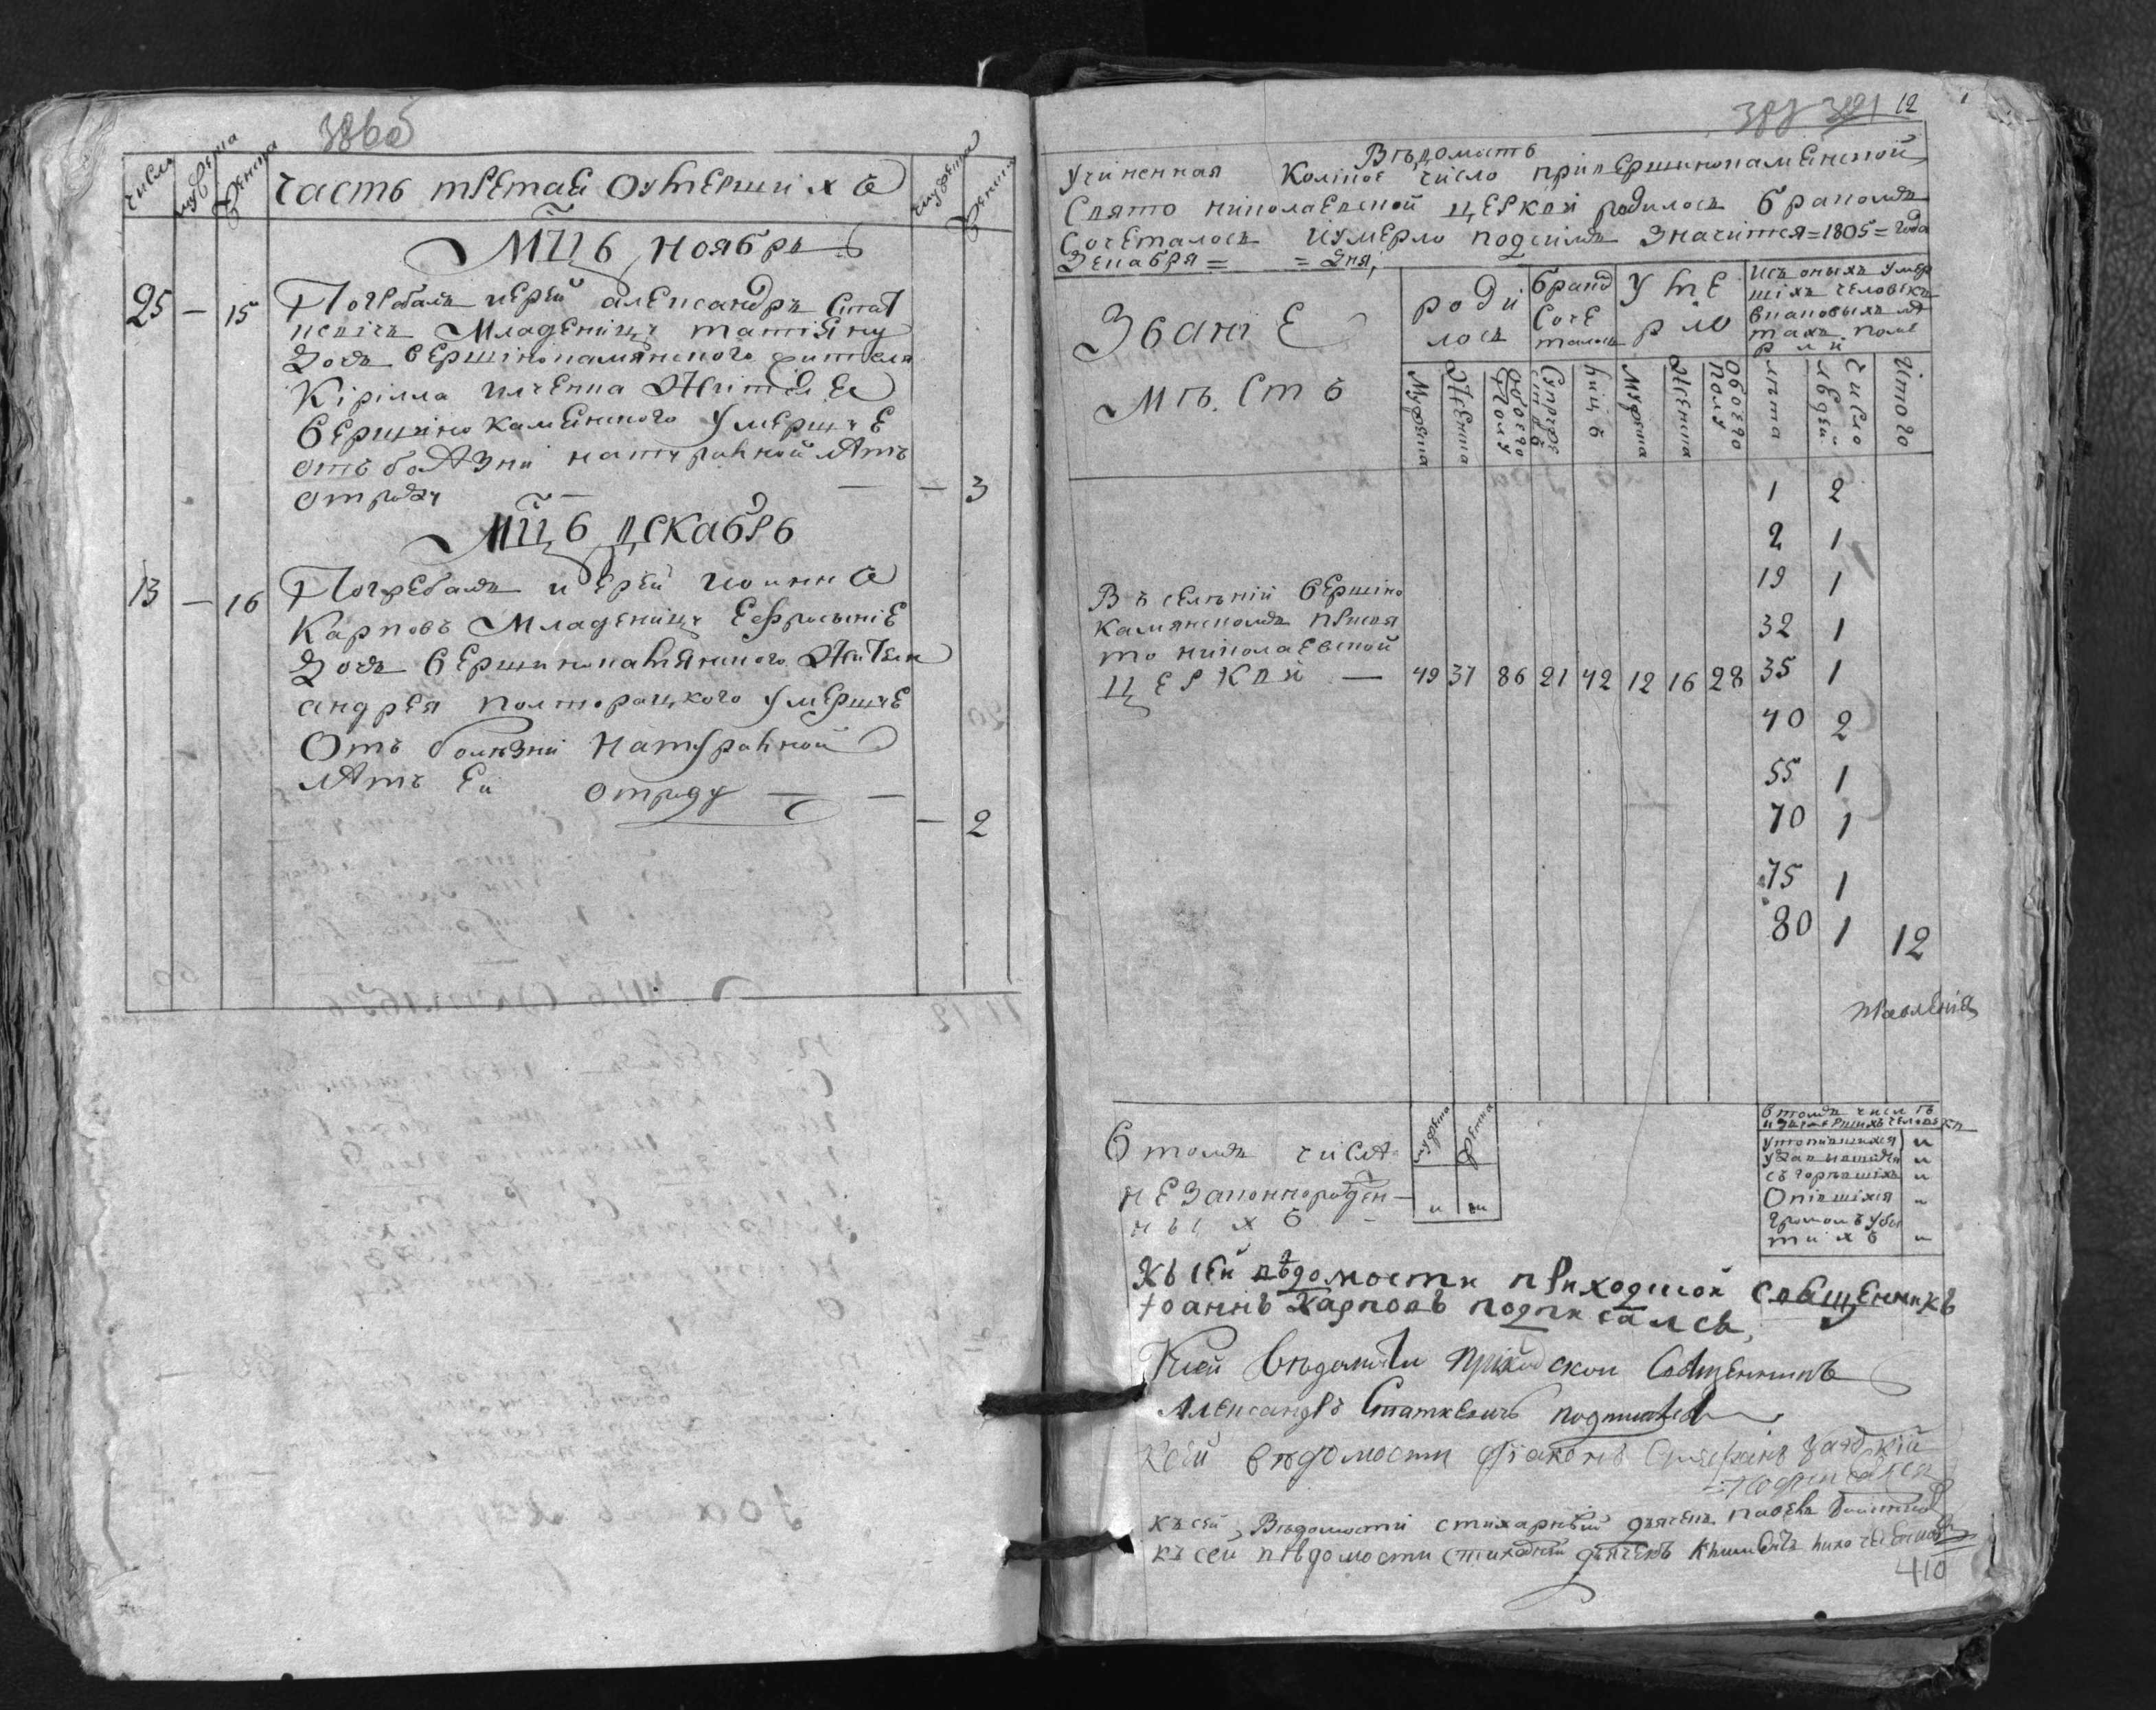 386об
числа
мужеска
женска
часть третая о умершихъ
мужеска
женска
МЦЪ ноябрь
25 — 15 Погребалъ иерей александръ Стат
кевичъ Младеницу татіяну
дочь вершинокамянского жителя
Кирілла
вершинокаменского умершуе
отъ болѣзни натуралной лѣтъ
отроду — — 3
МЦЪ декабрь
13 — 16 Погребалъ иерей иоаннъ
Карповъ Младеницу Ефросиніе
дочь вершинокамянского жителя
андрея полторацкого умершуе
Отъ болѣзни натуралной
лѣтъ ей отроду — — — 2
388 321 12
Вѣдомать
учиненная коликое число привершинокаменской
Свято николаевской церкви родилось бракомъ
сочеталось иумерло подсимъ значится =1805= года
Декабря = = дня,
Званіе
мѣстъ
роди
лось
бракод
соче
талось
уме
рло
исъ оныхъ умер
шіхъ человекъ
вкаковыхъ лѣ
тахъ поме
рли
Мужеска
Женска
Обоего
полу
Супруже
ствъ
лицъ
Мужеска
Женска
Обоего
полу
лѣта
число
людей
Итого
1 2
2 1
19 1
Въ селѣній вершино
камянскомъ присвя
32 1
то николаевской
церкви — 49 37 86 21 42 12 16 28 35 1
40 2
55 1
70 1
75 1
80 1 12
втомъ числѣ
незаконнорожден—
ныхъ
мужеска
женска
втомъ числѣ
изумершихъ человекъ
утопившихся
удавившихся
съгорѣвшихъ
Опившихся
громомъ уби
тихъ
Къ сей вѣдомости приходской священникъ
Іоаннъ Карповъ подписался
Ксей вѣдомости приходской священникъ
Александръ Статкевичъ подписался
Ксей вѣдомости діаконъ
подписался
къ сей Вѣдомости стихарный дьячекъ павелъ
къ сей вѣдомости стихарний дьячекъ
410